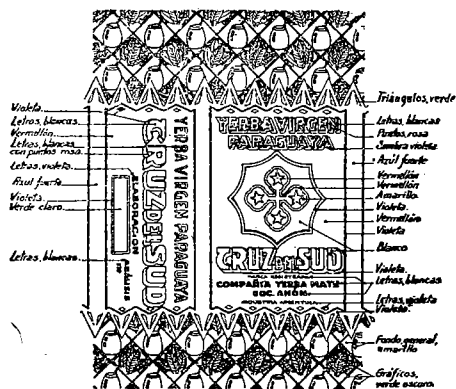 Violeta
Letras, blancas
Vermellón
Letras, blancas
con puntos rosa
Letras, violeta
Azul fuerte
Violeta
Verde claro
Letras, blancas
YERBA VIRGEN PARAGUAYA
CRUZ DEL SUD
ELABORACION
ANÁLISIS
YERBA VIRGEN
PARAGUAYA
CRUZ DEL SUD
MARCA REGISTRADA
COMPAÑIA YERBA MATE
SOC. ANÓN.
INDUSTRIA ARGENTINA
Triángulos, verde
Letras, blancas
Puntos, rosa
Sombra violeta
Azúl fuerte
Vermellón
Vermellón
Amarillo
Violeta
Vermellón
Violeta
Blanco
Violeta
Letras, blancas
Letras, violeta
Violeta
Fondo, general,
amarillo
Gráficos,
verde oscuro